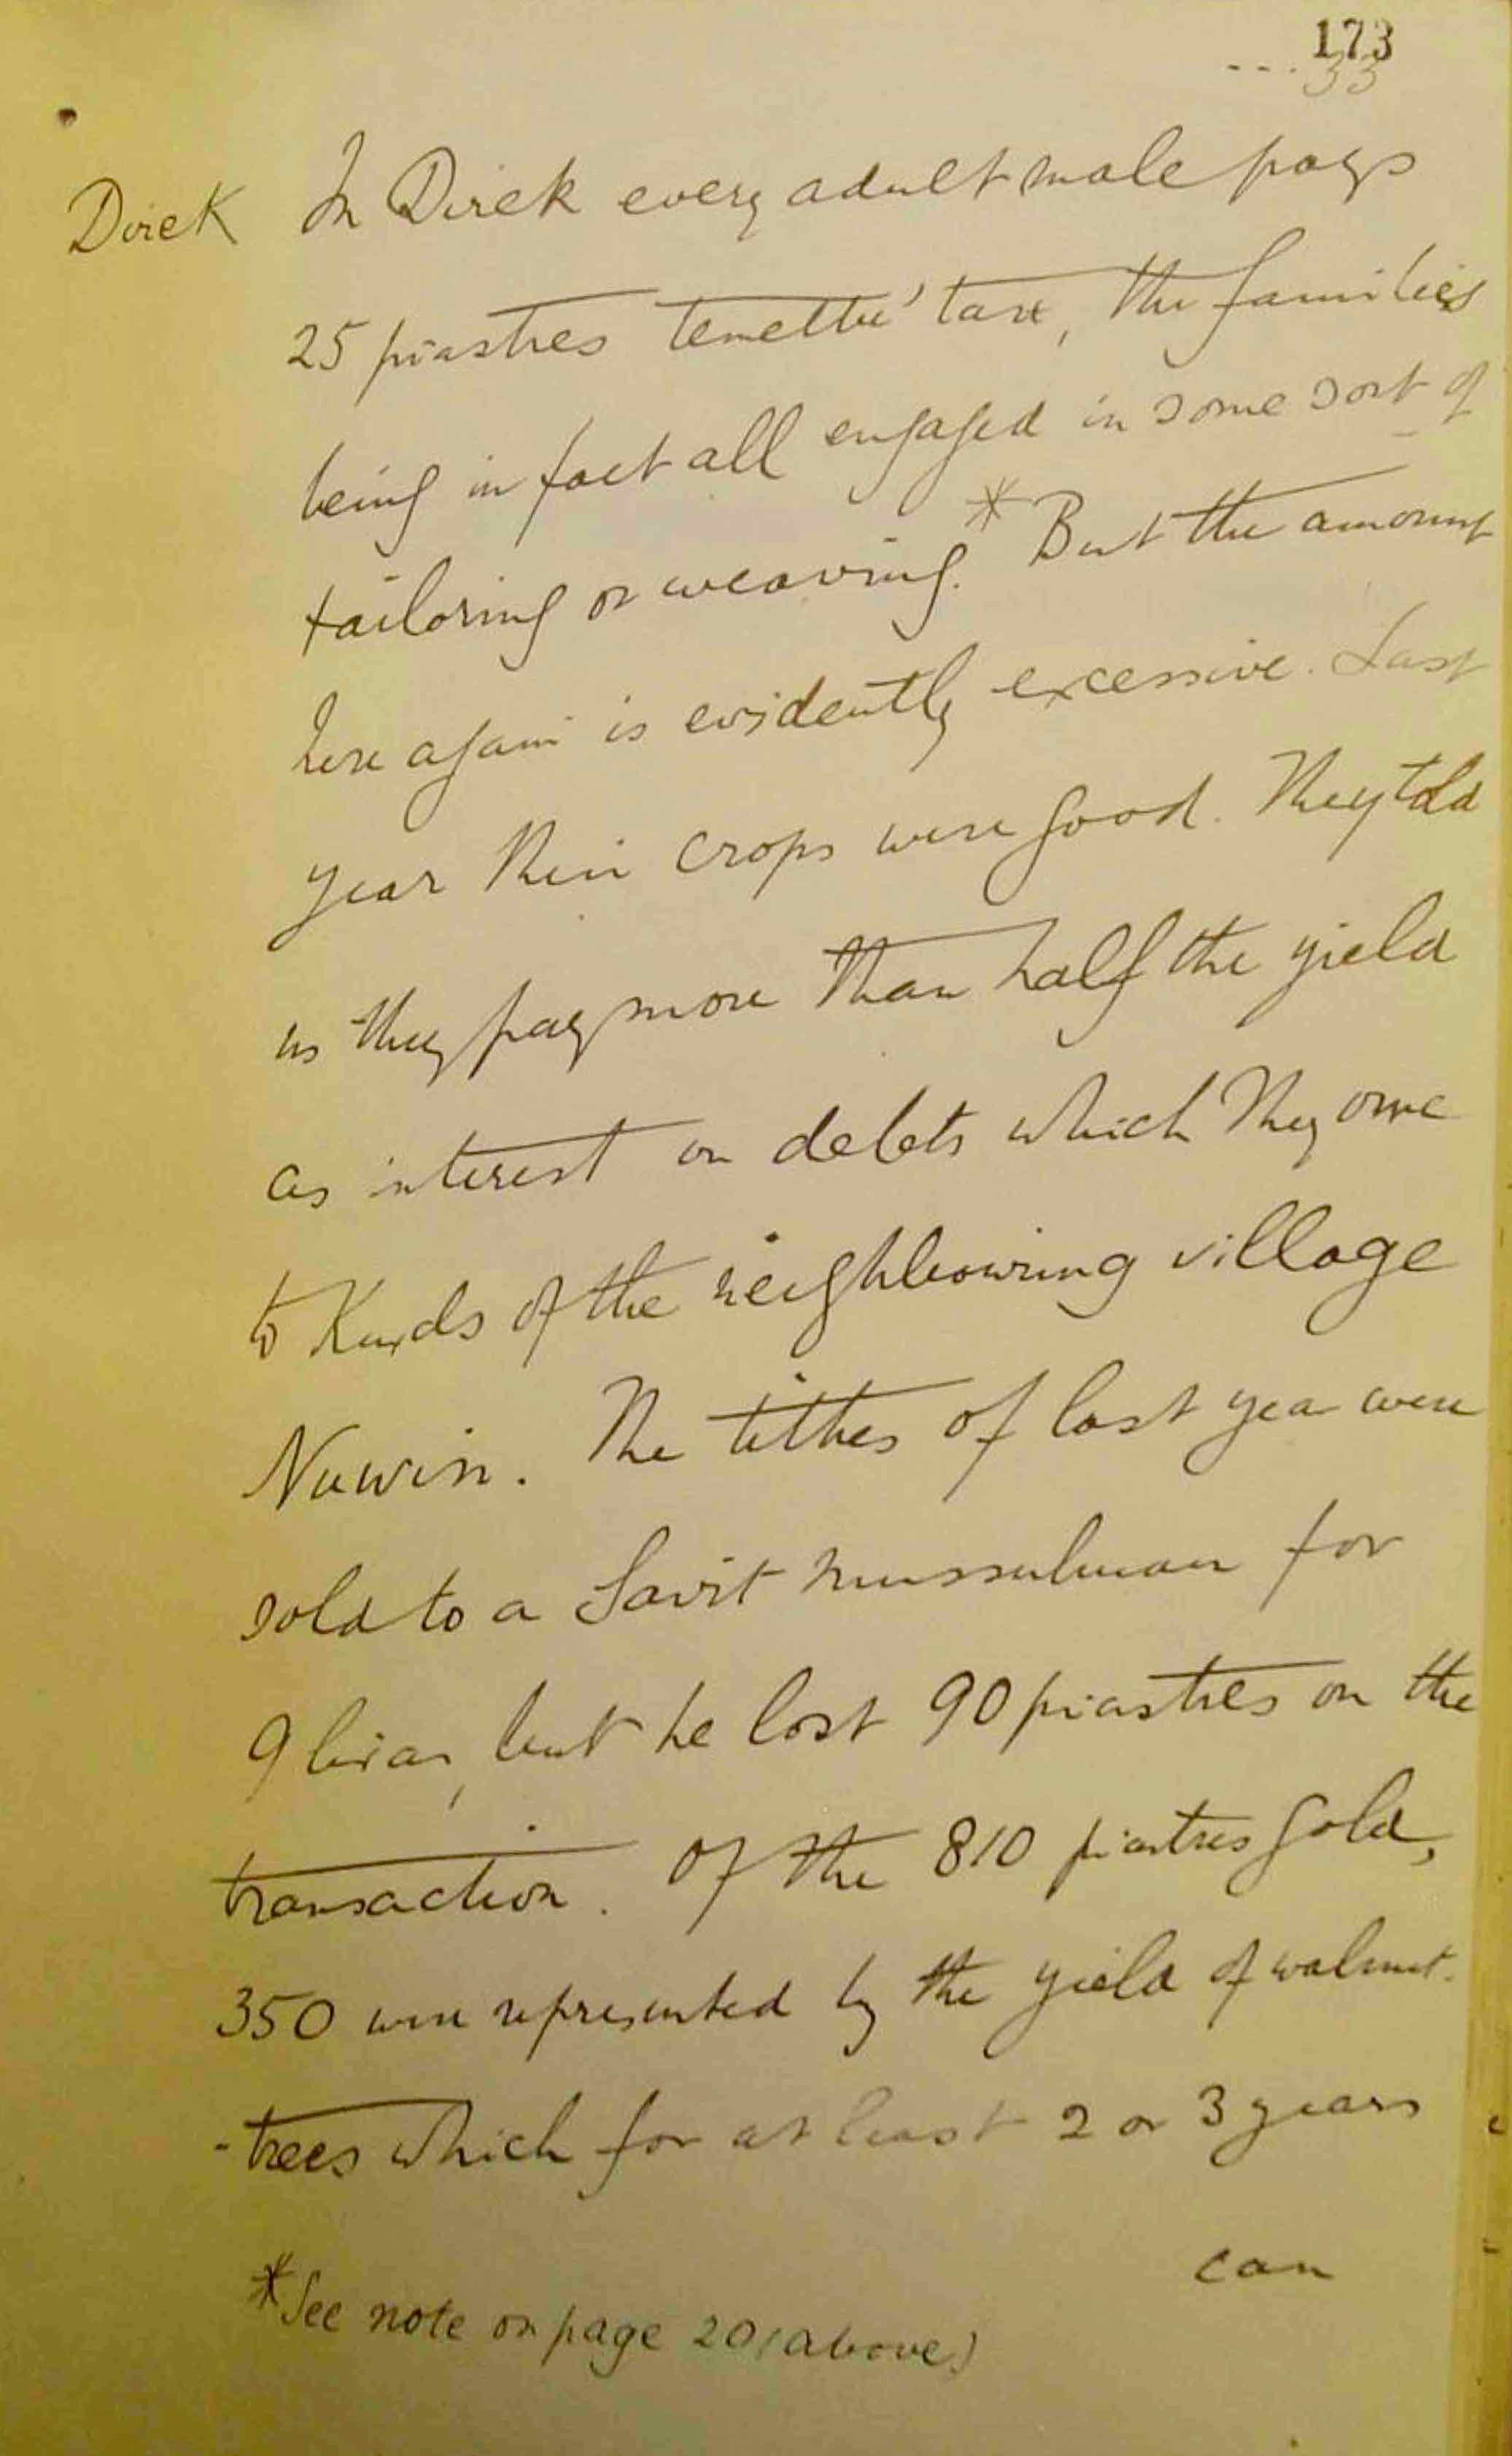 173
... 33
Direk In Direk every adult male pays
25 piastres temettu' tax, the families
being in fact all engaged in some sort of
tailoring or weaving.* But the amount
here again is evidently excessive. Last
year their crops were good. They told
us they pay more than half the yield
as interest on debts which they owe
to Kurds of the neighbouring village
Nuwin. The tithes of last year were
sold to a Mussulman for
9 liras, but he lost 90 piastres on the
transaction. Of the 810 piastres gold,
350 were represented by the yield of walnut-
-trees which for at least 2 or 3 years
can
*See note on page 20 (above)